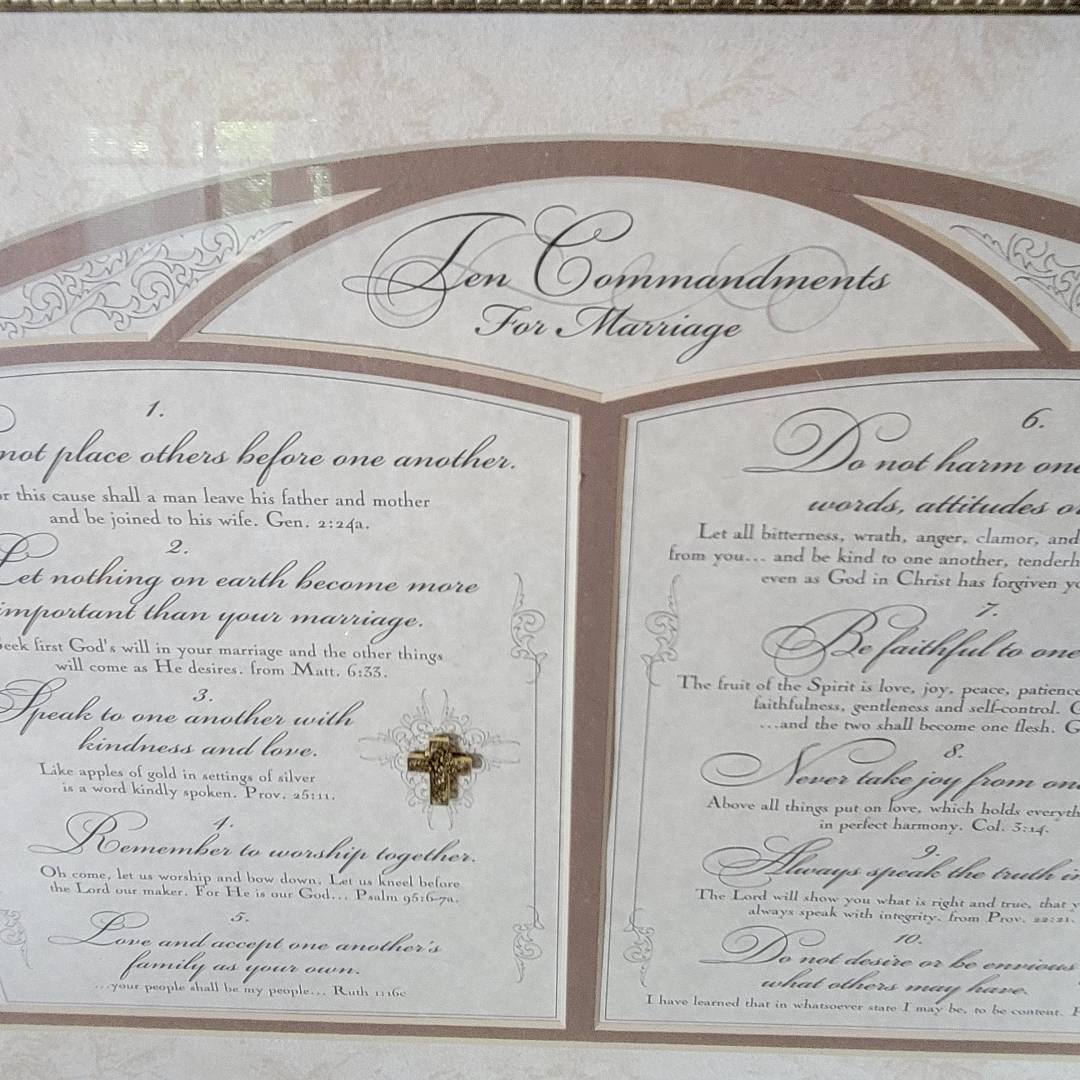 Ten Commandments
For Marriage
1.
not place others before one another.
this cause shall a man leave his father and mother
and be joined to his wife. Gen. 2:24a.
2.
Let nothing on earth become more
important than your marriage.
seek first God's will in your marriage and the other things
will come as He desires. from Matt. 6:33.
3.
Speak to one another with
kindness and love.
Like apples of gold in settings of silver
is a word kindly spoken. Prov. 25:11.
4.
Remember to worship together.
Oh come, let us worship and bow down. Let us kneel before
the Lord our maker. For He is our God... Psalm 95:6-7a.
5.
Love and accept one another's
family as your own.
...your people shall be my people... Ruth 1:16c
6.
Do not harm one
words, attitudes
Let all bitterness, wrath, anger, clamor, and
from you... and be kind to one another,
even as God in Christ has forgiven
7.
Be faithful to one
The fruit of the Spirit is love, joy, peace, patience
faithfulness, gentleness and self-control.
...and the two shall become one flesh.
8.
Never take joy from
Above all things put on love, which holds
in perfect harmony. Col. 3:14.
9.
Always speak the truth
The Lord will show you what is right and true, that
always speak with integrity. from Prov. 22:21.
10.
Do not desire or be envious
what others may have.
I have learned that in whatsoever state I may be, to be content.